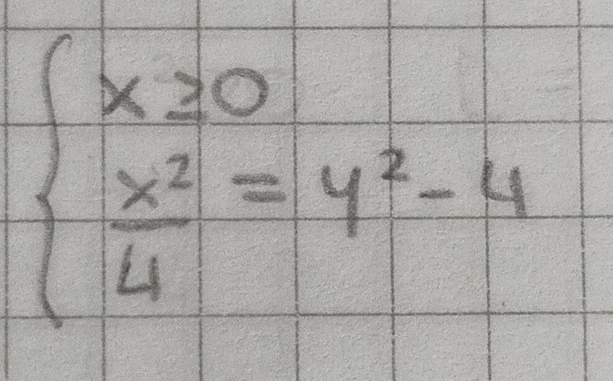 x ≥ 0
x²/4 = y² - 4